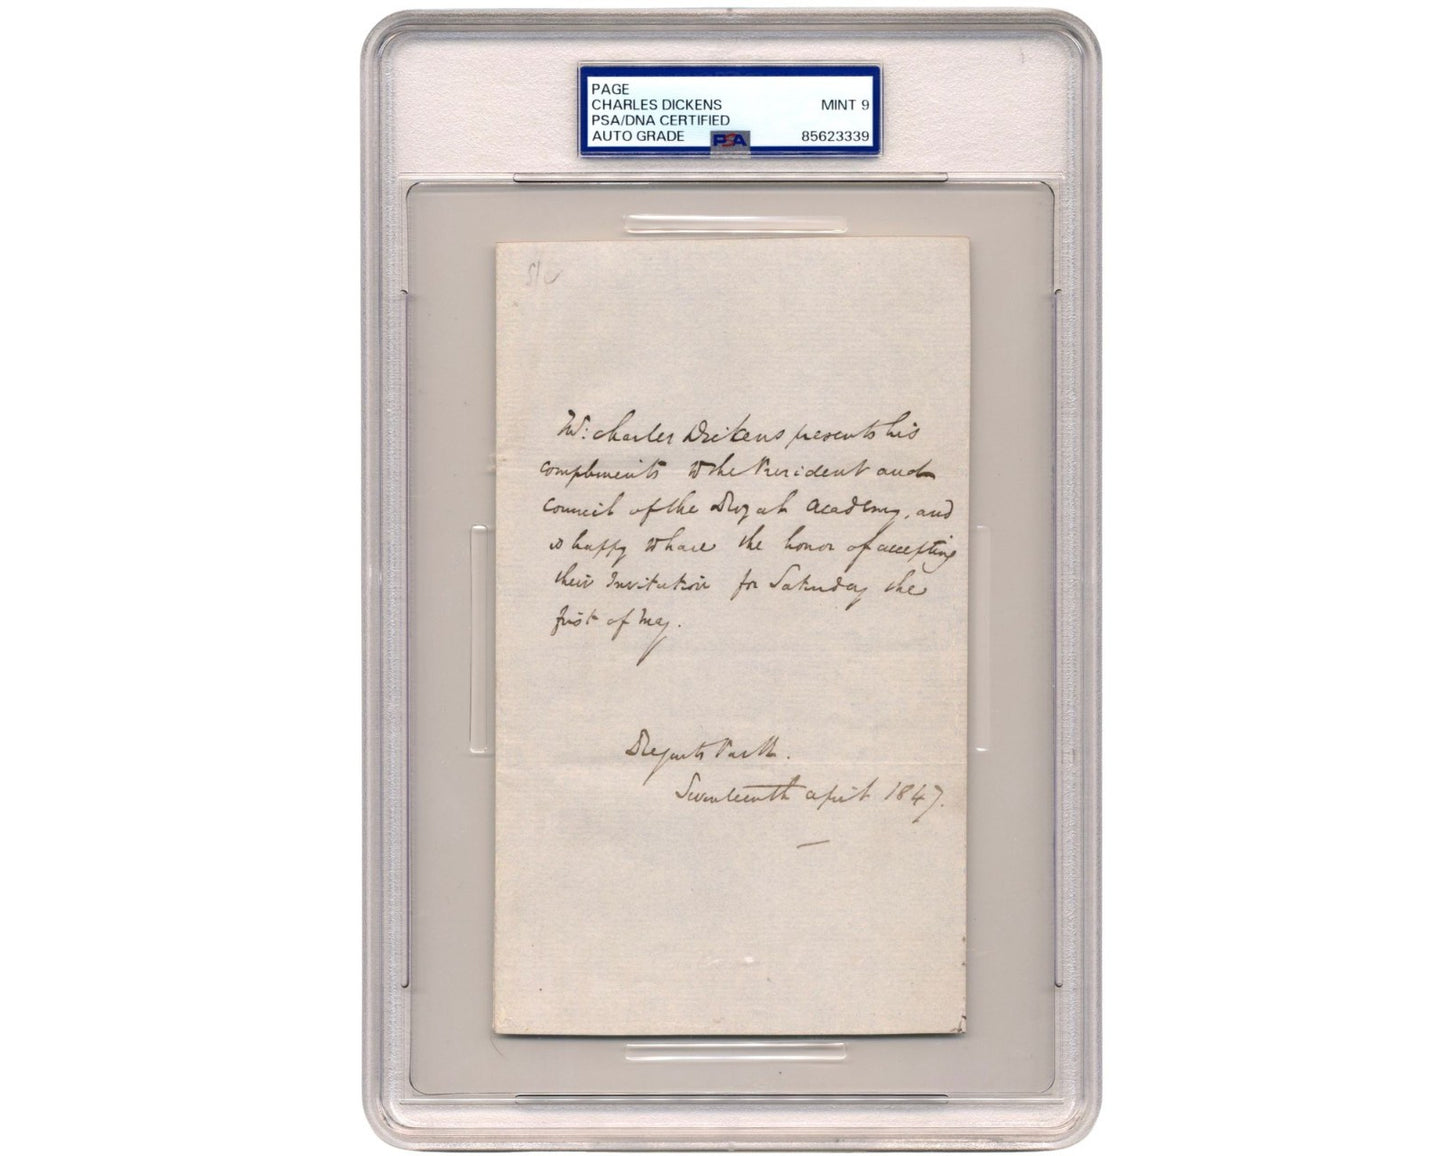 PAGE
CHARLES DICKENS MINT 9
PSA/DNA CERTIFIED
AUTO GRADE PSA 85623339
Mr: Charles Dickens presents his
compliments to the President and
Council of the Royal Academy, and
is happy to have the honor of accepting
their Invitation for Saturday the
first of May.
Regents Park.
Seventeenth April 1847.